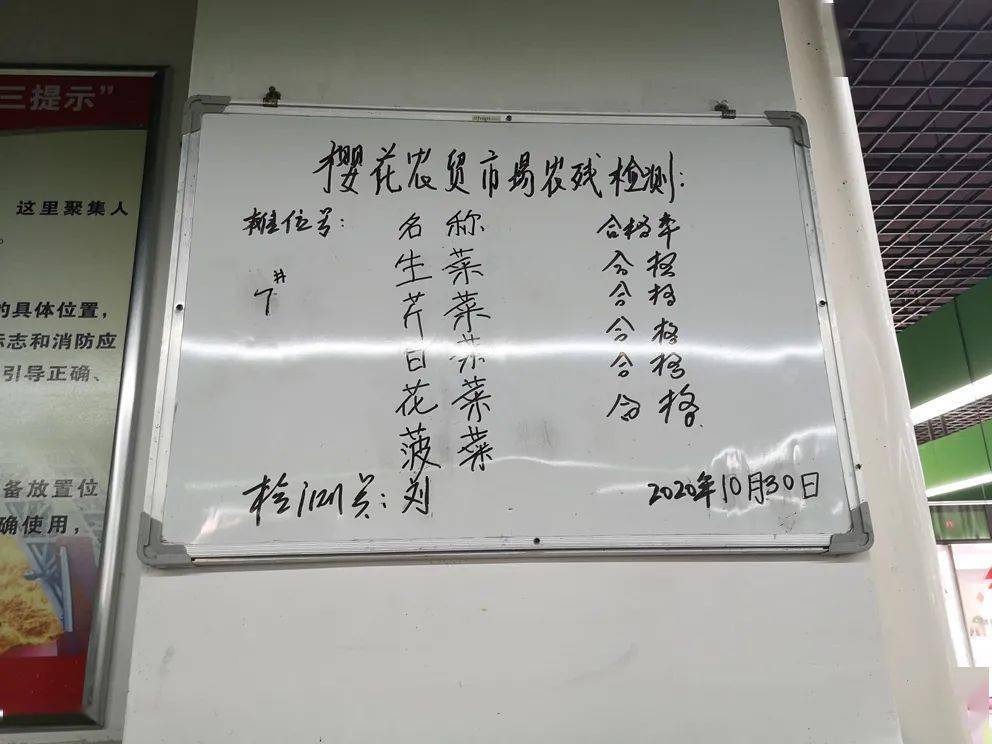 三提示”
这里聚集人
。
的具体位置，
示志和消防应
引导正确、
备放置位
确使用，
樱花农贸市场农残检测：
摊位号： 名称 合格率
7# 生菜 合格
芹菜 合格
白菜 合格
花菜 合格
菠菜 合格
检测员：刘 2020年10月30日